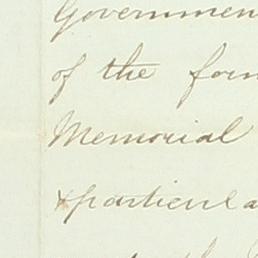 Governmen
of the for
Memorial
& particula